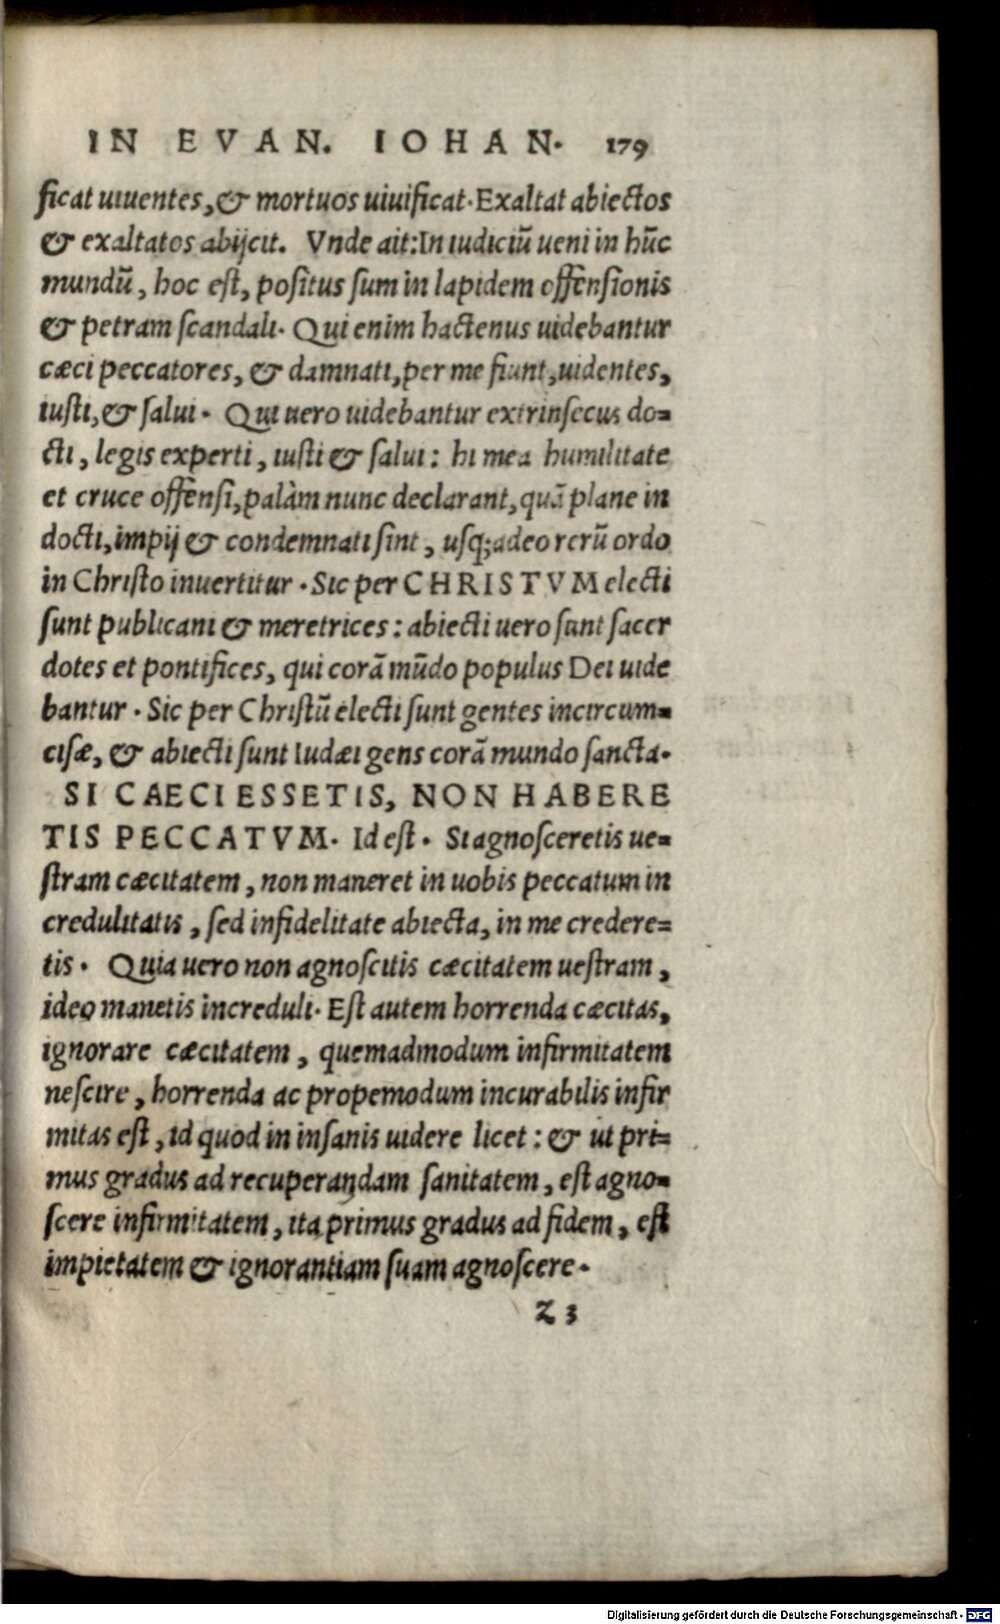 IN EVAN. IOHAN. 179
ficat uiuentes, & mortuos uiuificat. Exaltat abiectos
& exaltatos abijcit. Vnde ait: In iudiciū ueni in hūc
mundū, hoc est, positus sum in lapidem offensionis
& petram scandali. Qui enim hactenus uidebantur
cæci peccatores, & damnati, per me fiunt, uidentes,
iusti, & salui. Qui uero uidebantur extrinsecus do=
cti, legis experti, iusti & salui: hi mea humilitate
et cruce offensi, palàm nunc declarant, quā plane in
docti, impij & condemnati sint, usq; adeo rerū ordo
in Christo inuertitur. Sic per CHRISTVM electi
sunt publicani & meretrices: abiecti uero sunt sacer
dotes et pontifices, qui corā mūdo populus Dei uide
bantur. Sic per Christū electi sunt gentes incircum=
cisæ, & abiecti sunt Iudæi gens corā mundo sancta.
SI CAECI ESSETIS, NON HABERE
TIS PECCATVM. Id est. Si agnosceretis ue=
stram cæcitatem, non maneret in uobis peccatum in
credulitatis, sed infidelitate abiecta, in me credere=
tis. Quia uero non agnoscitis cæcitatem uestram,
ideo manetis increduli. Est autem horrenda cæcitas,
ignorare cæcitatem, quemadmodum infirmitatem
nescire, horrenda ac propemodum incurabilis infir
mitas est, id quod in insanis uidere licet: & ut pri=
mus gradus ad recuperandam sanitatem, est agno=
scere infirmitatem, ita primus gradus ad fidem, est
impietatem & ignorantiam suam agnoscere.
Z 3
Digitalisierung gefördert durch die Deutsche Forschungsgemeinschaft - DFG